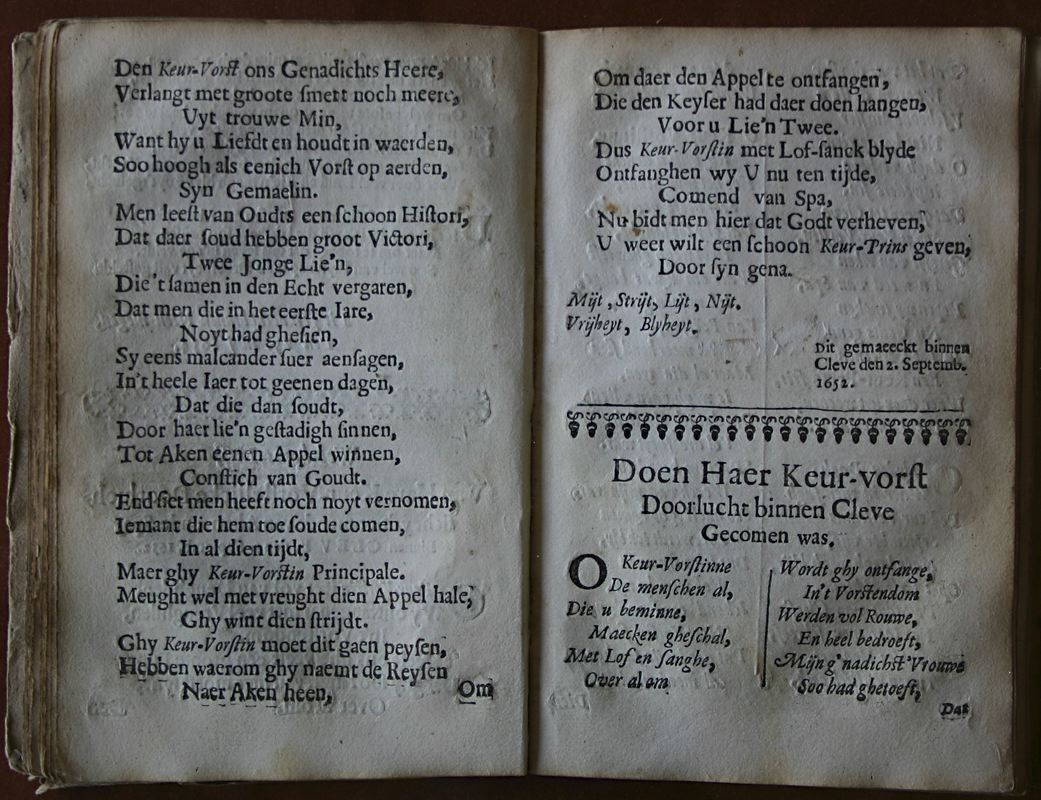 Den Keur-Vorst ons Genadichts Heere,
Verlangt met groote smett noch meere,
Uyt trouwe Min,
Want hy u Liefdt en houdt in waerden,
Soo hoogh als eenich Vorst op aerden,
Syn Gemaelin.
Men leest van Oudts een schoon Histori,
Dat daer soud hebben groot Victori,
Twee Jonge Lie'n,
Die 't samen in den Echt vergaren,
Dat men die in het eerste Iare,
Noyt had ghesien,
Sy eens malcander suer aensagen,
In't heele Iaer tot geenen dagen,
Dat die dan soudt,
Door haer lie'n gestadigh sinnen,
Tot Aken eenen Appel winnen,
Constich van Goudt.
End siet men heeft noch noyt vernomen,
Iemant die hem toe soude comen,
In al dien tijdt,
Maer ghy Keur-Vorstin Principale.
Meught wel met vreught dien Appel hale,
Ghy wint dien strijdt.
Ghy Keur-Vorstin moet dit gaen peysen,
Hebben waerom ghy naemt de Reysen
Naer Aken heen,
Om
Om daer den Appel te ontfangen,
Die den Keyser had daer doen hangen,
Voor u Lie'n Twee.
Dus Keur-Vorstin met Lof-sanck blyde
Ontfanghen wy U nu ten tijde,
Comend van Spa,
Nu bidt men hier dat Godt verheven,
U weer wilt een schoon Keur-Prins geven,
Door syn gena.
Mijt, Strijt, Lijt, Nijt.
Vrijheyt, Blyheyt.
Dit gemaeeckt binnen
Cleve den 2. Septemb.
1652.
Doen Haer Keur-vorst
Doorlucht binnen Cleve
Gecomen was.
O Keur-Vorstinne
De menschen al,
Die u beminne,
Maecken gheschal,
Met Lof en sanghe,
Over al om
Wordt ghy ontfange,
In't Vorstendom
Werden vol Rouwe,
En heel bedroeft,
Mijn g'nadichst' Vrouwe
Soo had ghetoeft,
Dat